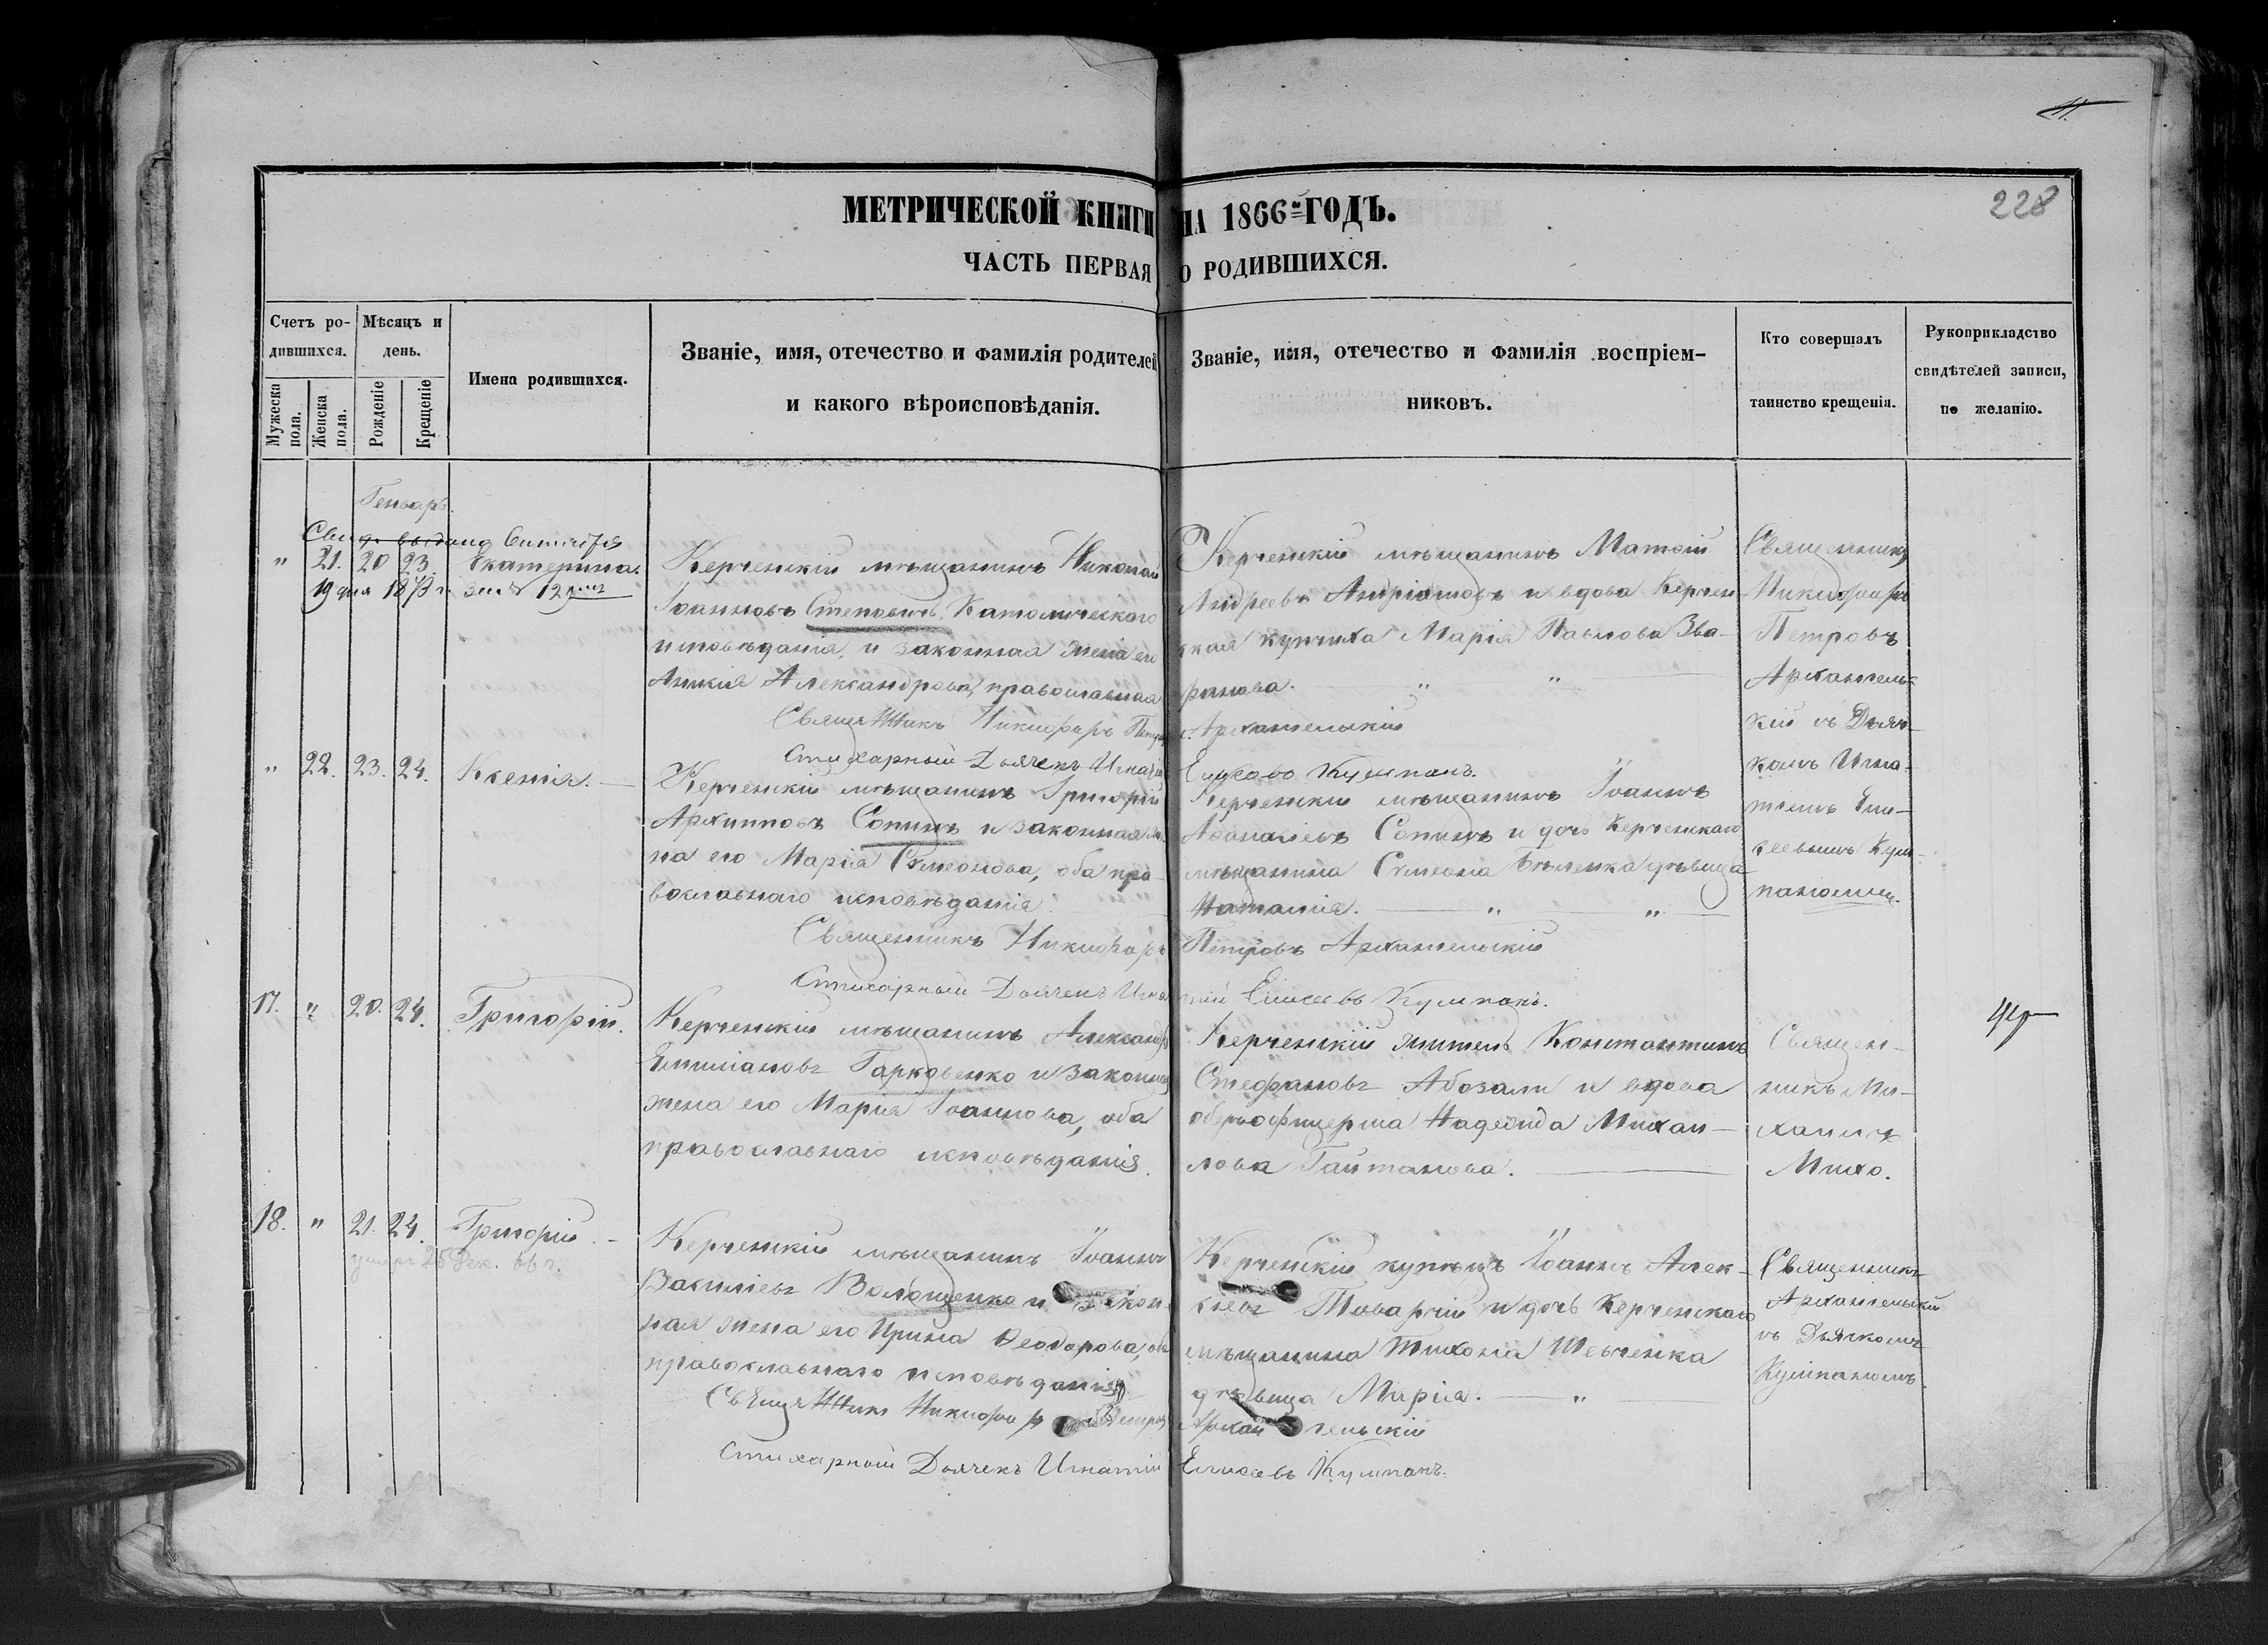 11.
228
МЕТРИЧЕСКОЙ КНИГИ НА 1866й ГОДЪ.
ЧАСТЬ ПЕРВАЯ О РОДИВШИХСЯ.
Счетъ ро-
дившихся.
Мужеска пола.
Женска пола.
Мѣсяцъ и
день.
Рожденіе
Крещеніе
Имена родившихся.
Званіе, имя, отечество и фамилія родителей
и какого вѣроисповѣданія.
Званіе, имя, отечество и фамилія воспріем-
никовъ.
Кто совершалъ
таинство крещенія.
Рукоприкладство
свидѣтелей записи,
по желанію.
Генварь.
Свид. выдано Сентября
" 21. 20 23. Екатерина.
19 дня 1873 г. за № 129
Керченскій мѣщанинъ Николай
Іоанновъ Степовичъ, Католическаго
исповѣданія, и законная жена его
Александрова, православная
Священникъ Никифоръ Петровъ
Стихарный Дьячекъ Игнатій
Керченскій мѣщанинъ Матѳій
Андреевъ и вдова Керчен-
ская купчиха Марія Павлова Зва-
Архангельскій
Елисеевъ Кумпанъ.
Священникъ
Никифоръ
Петровъ
Архангельс-
кій съ Дьяч-
комъ Игна-
тіемъ Ели-
сеевымъ Кум-
паномъ.
" 22. 23. 24. Ксенія.
Керченскій мѣщанинъ Григорій
Архипповъ Сопинъ и законная же-
на его Марія Симеонова, оба пра-
вославнаго исповѣданія.
Священникъ Никифоръ
Стихарный Дьячекъ Игна
Керченскій мѣщанинъ Іоаннъ
Аѳанасіевъ Сопинъ и дочь Керченскаго
мѣщанина Симеона Бѣленка дѣвица
Наталія. " "
Петровъ Архангельскій
тій Елисеевъ Кумпанъ.
17. " 20. 24. Григорій.
Керченскій мѣщанинъ Александръ
Емиліановъ Гарковенко и законная
жена его Марія Іоаннова, оба
православнаго исповѣданія.
Керченскій житель Константинъ
Стефановъ Абозали и вдова
оберъофицерша Надежда Михаи-
лова Гайтанова.
Священ-
никъ Ми-
хаилъ
Михо.
18. " 21. 24. Григорій.
умеръ 25 Дек. 66 г.
Керченскій мѣщанинъ Іоаннъ
Василіевъ Волощенко и закон-
ная жена его Ирина Ѳеодорова, оба
православнаго исповѣданія
Священникъ Никифоръ Петровъ
Стихарный Дьячекъ Игнатій
Керченскій купецъ Іоаннъ Алек-
сѣевъ и дочь Керченскаго
мѣщанина Тихона Шевченка
дѣвица Марія. "
Архангельскій
Елисеевъ Кумпанъ.
Священникъ
Архангельскій
съ Дьячкомъ
Кумпаномъ.